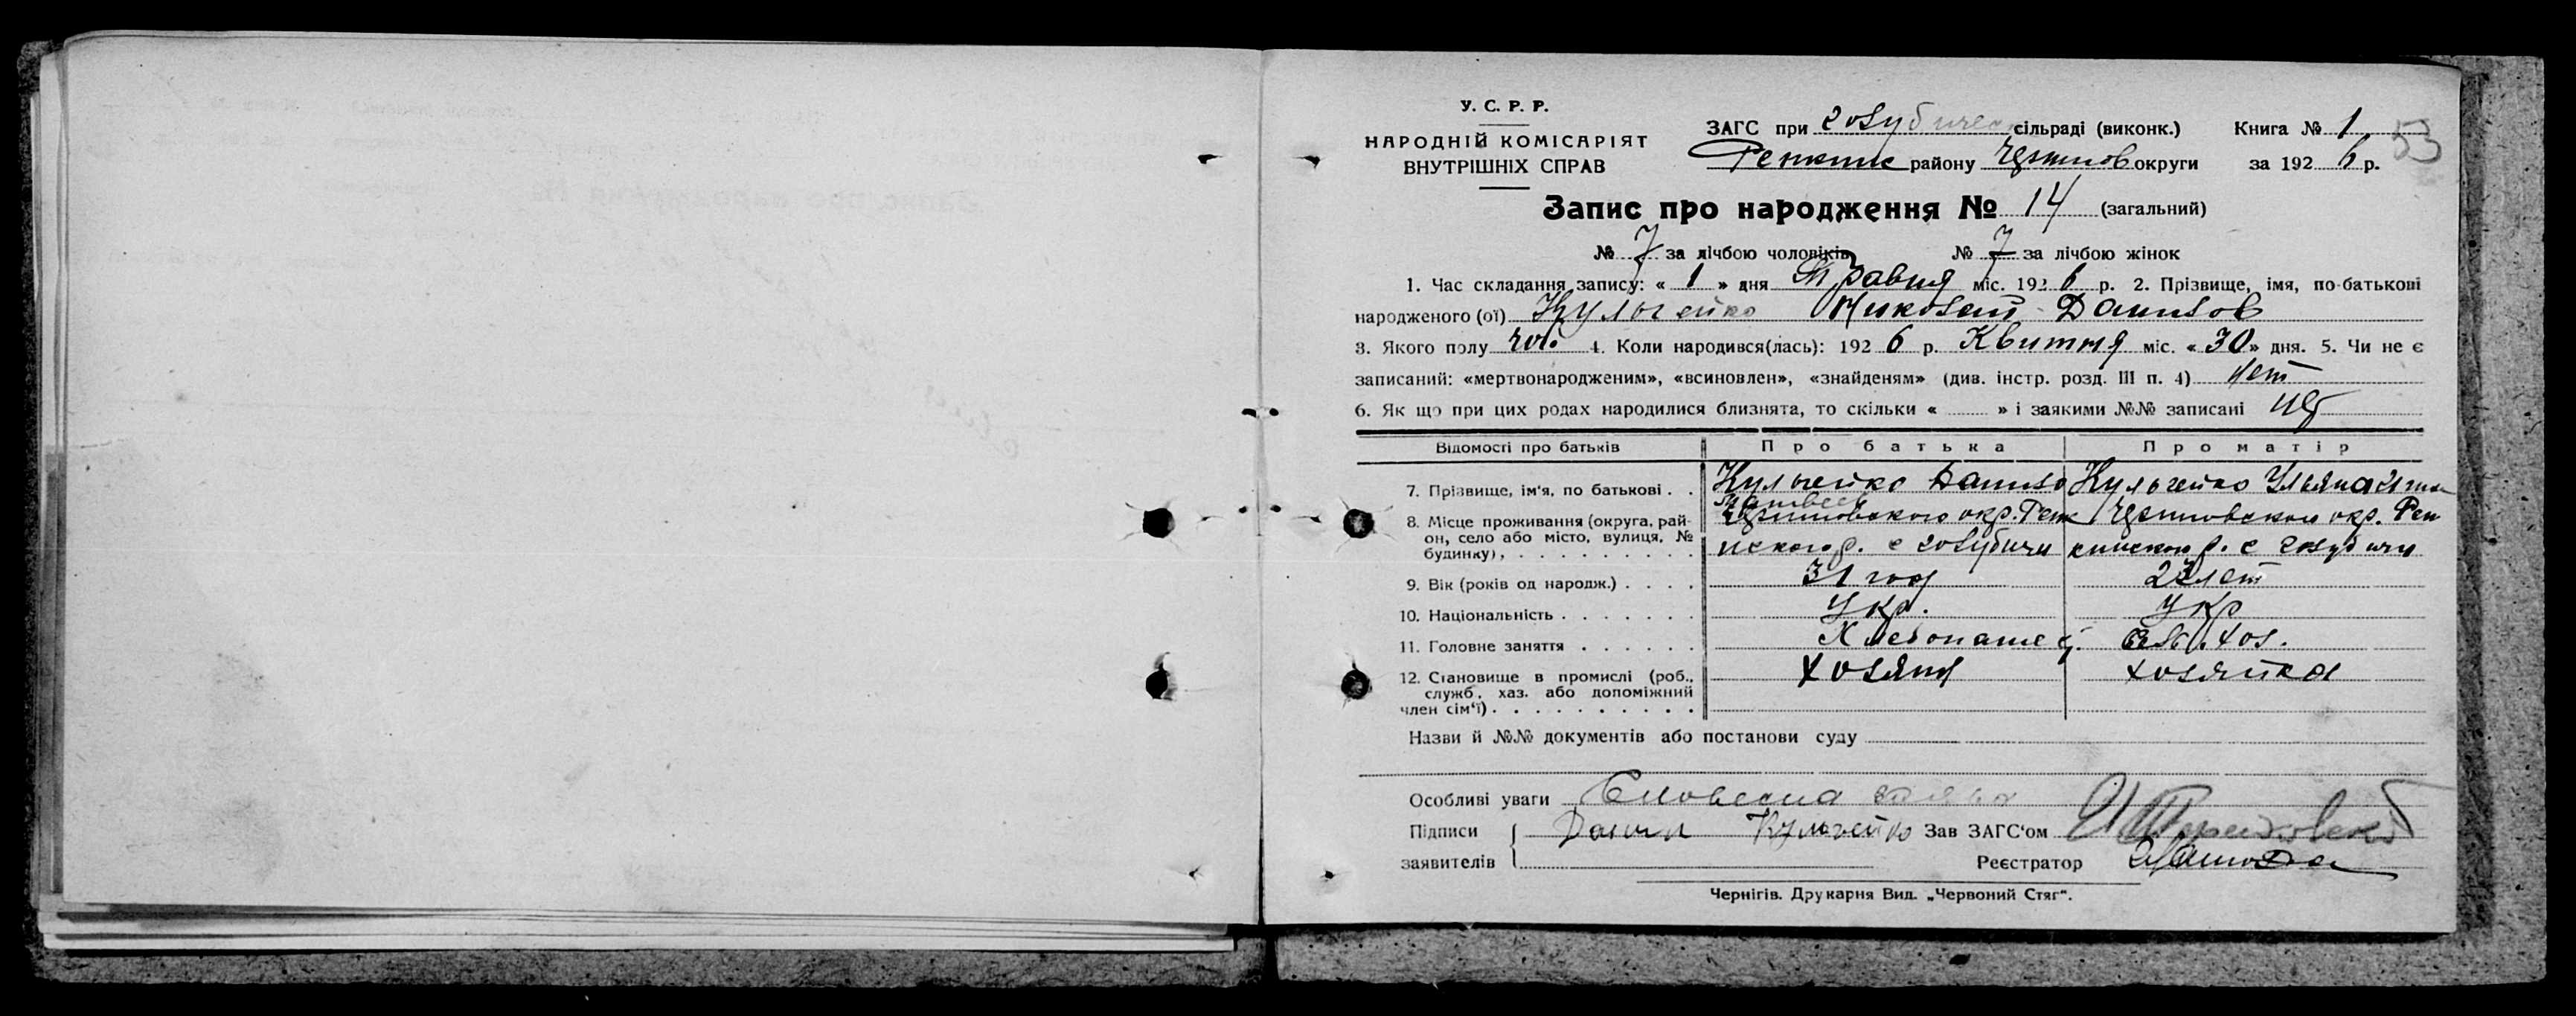 У. С. Р. Р.
НАРОДНІЙ КОМІСАРІЯТ
ВНУТРІШНІХ СПРАВ
ЗАГС при Голубичес сільраді (виконк.) Книга № 1
53
Репкинс району Чернигов округи за 1926 р.
Запис про народження № 14 (загальний)
№ 7 за лічбою чоловіків № 7 за лічбою жінок
1. Час складання запису: « 1 » дня Травня міс. 1926 р. 2. Прізвище, імя, по-батькові
народженого (ої) Кульгейко Николай Данилов
3. Якого полу чол. 4. Коли народився(лась): 1926 р. Квитня міс. «30» дня. 5. Чи не є
записаний: «мертвонародженим», «всиновлен», «знайденям» (див. інстр. розд. III п. 4) нет
6. Як що при цих родах народилися близнята, то скільки « » і заякими №№ записані нет
Відомості про батьків Про батька Про матір
7. Прізвище, ім'я, по батькові . . Кульгейко Данило Матвеев Кульгейко Ульяна
8. Місце проживання (округа, рай- Черниговского окр. Репк Черниговского окр. Реп
он, село або місто, вулиця, № будинку), инского р. с Голубичи кинского р. с Голубичи
9. Вік (років од народж.) . . . . 31 год 23 лет
10. Національність . . . . . . . Укр. Укр
11. Головне заняття . . . . . . Хлебопашец. сельхоз.
12. Становище в промислі (роб., хозяин хозяйка
служб., хаз. або допоміжний
член сім'ї) . . . . . . . . . .
Назви й №№ документів або постанови суду
Особливі уваги Словесна заява
Підписи Данил Кульгейко Зав ЗАГС'ом
заявителів Реєстратор
Чернігів. Друкарня Вид. „Червоний Стяг".